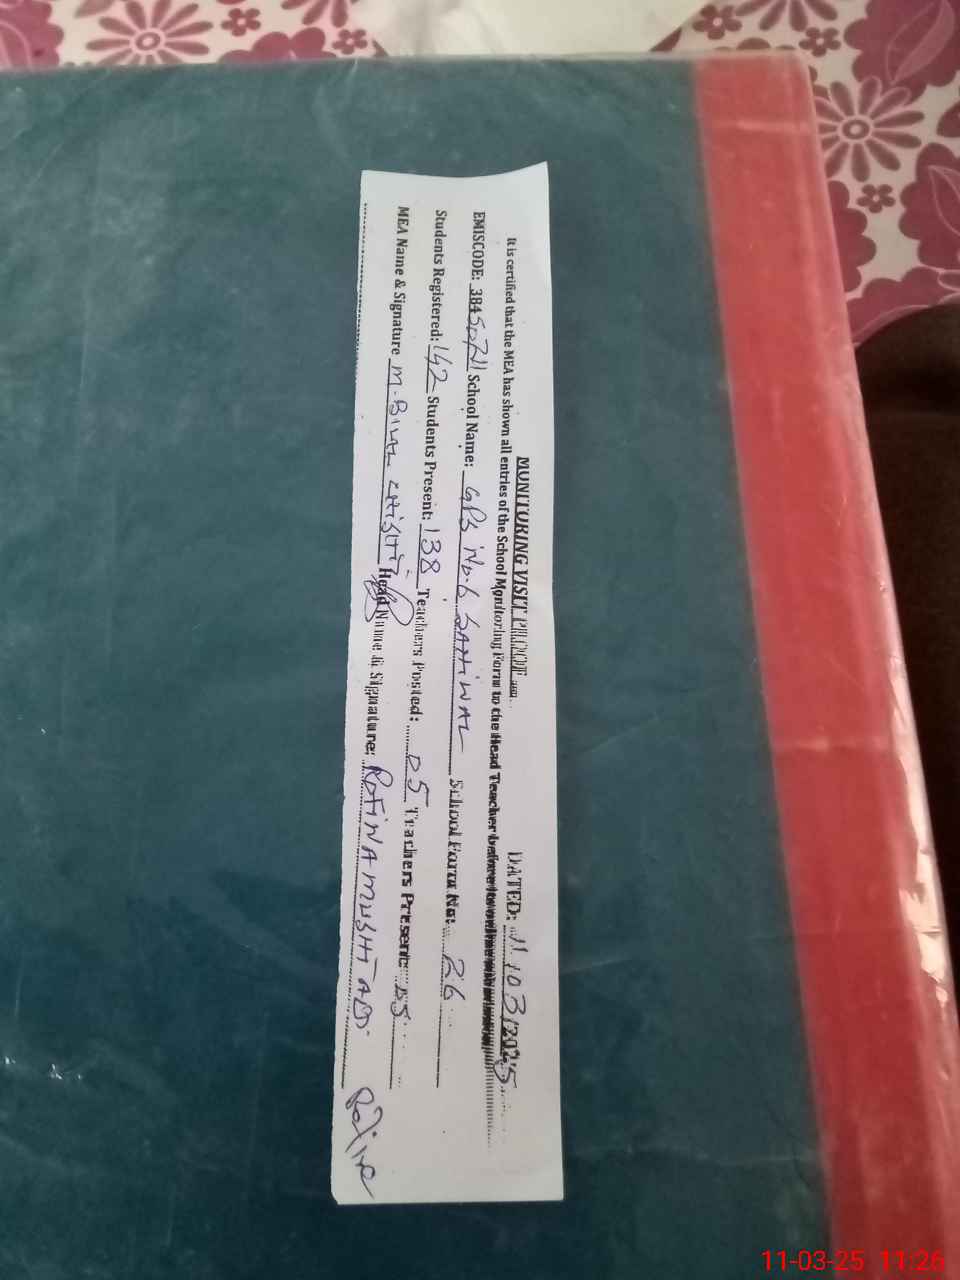 MONITORING VISIT PROOF DATED: 11.03/2025
It is certified that the MEA has shown all entries of the School Monitoring Form to the Head Teacher before
EMISCODE: 384 School Name: GPS No.6 SAHIWAL School Form No: 26
Students Registered: 142 Students Present: 138 Teachers Posted: 05 Teachers Present: 05
MEA Name & Signature M. BILAL CHISHTI Head Name & Signature:
11-03-25 11:26